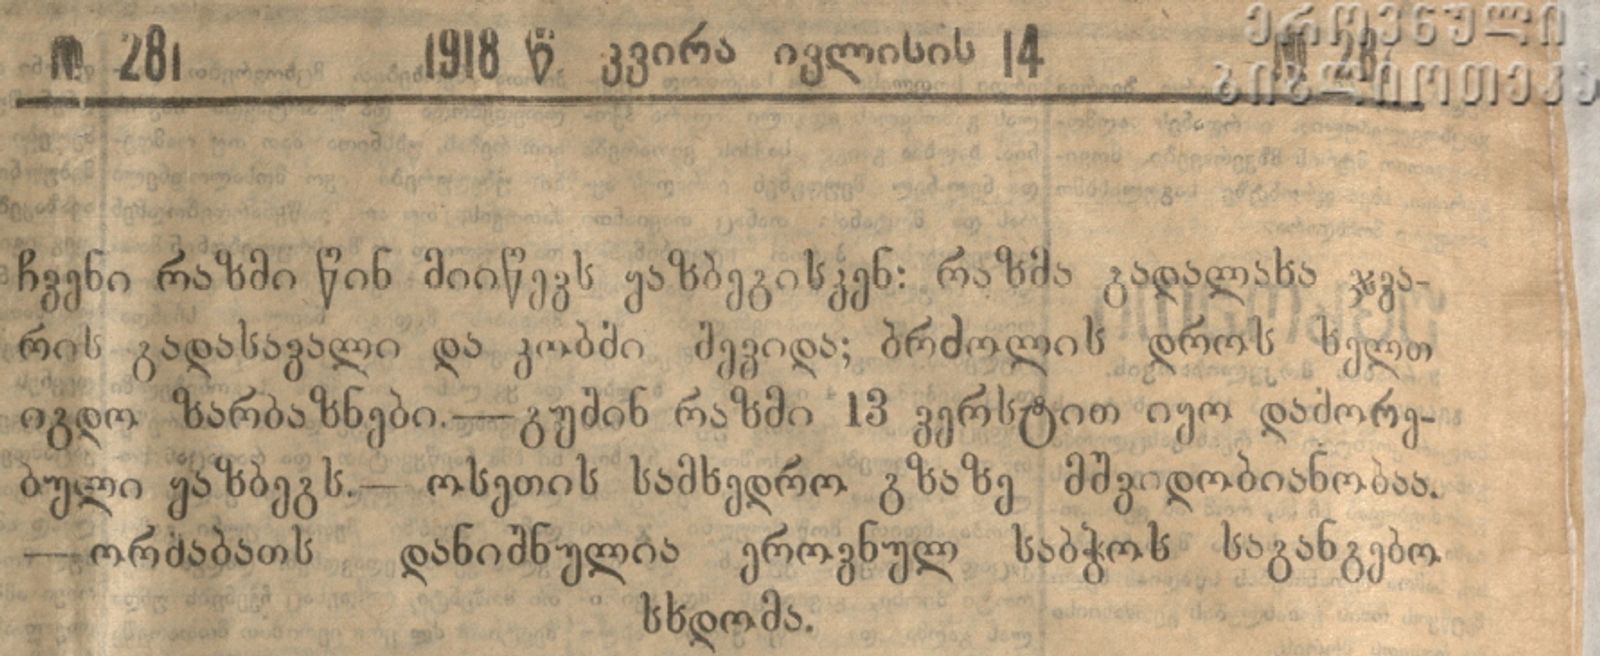 ეროვნული
ბიბლიოთეკა
№ 281 1918 წ. კვირა ივლისის 14 № 281
ჩვენი რაზმი წინ მიიწევს ყაზბეგისკენ: რაზმა გადალახა ჯვა-
რის გადასავალი და კობში შევიდა; ბრძოლის დროს ხელთ
იგდო ზარბაზნები.—გუშინ რაზმი 13 ვერსტით იყო დაშორე-
ბული ყაზბეგს.—ოსეთის სამხედრო გზაზე მშვიდობიანობაა.
—ორშაბათს დანიშნულია ეროვნულ საბჭოს საგანგებო
სხდომა.